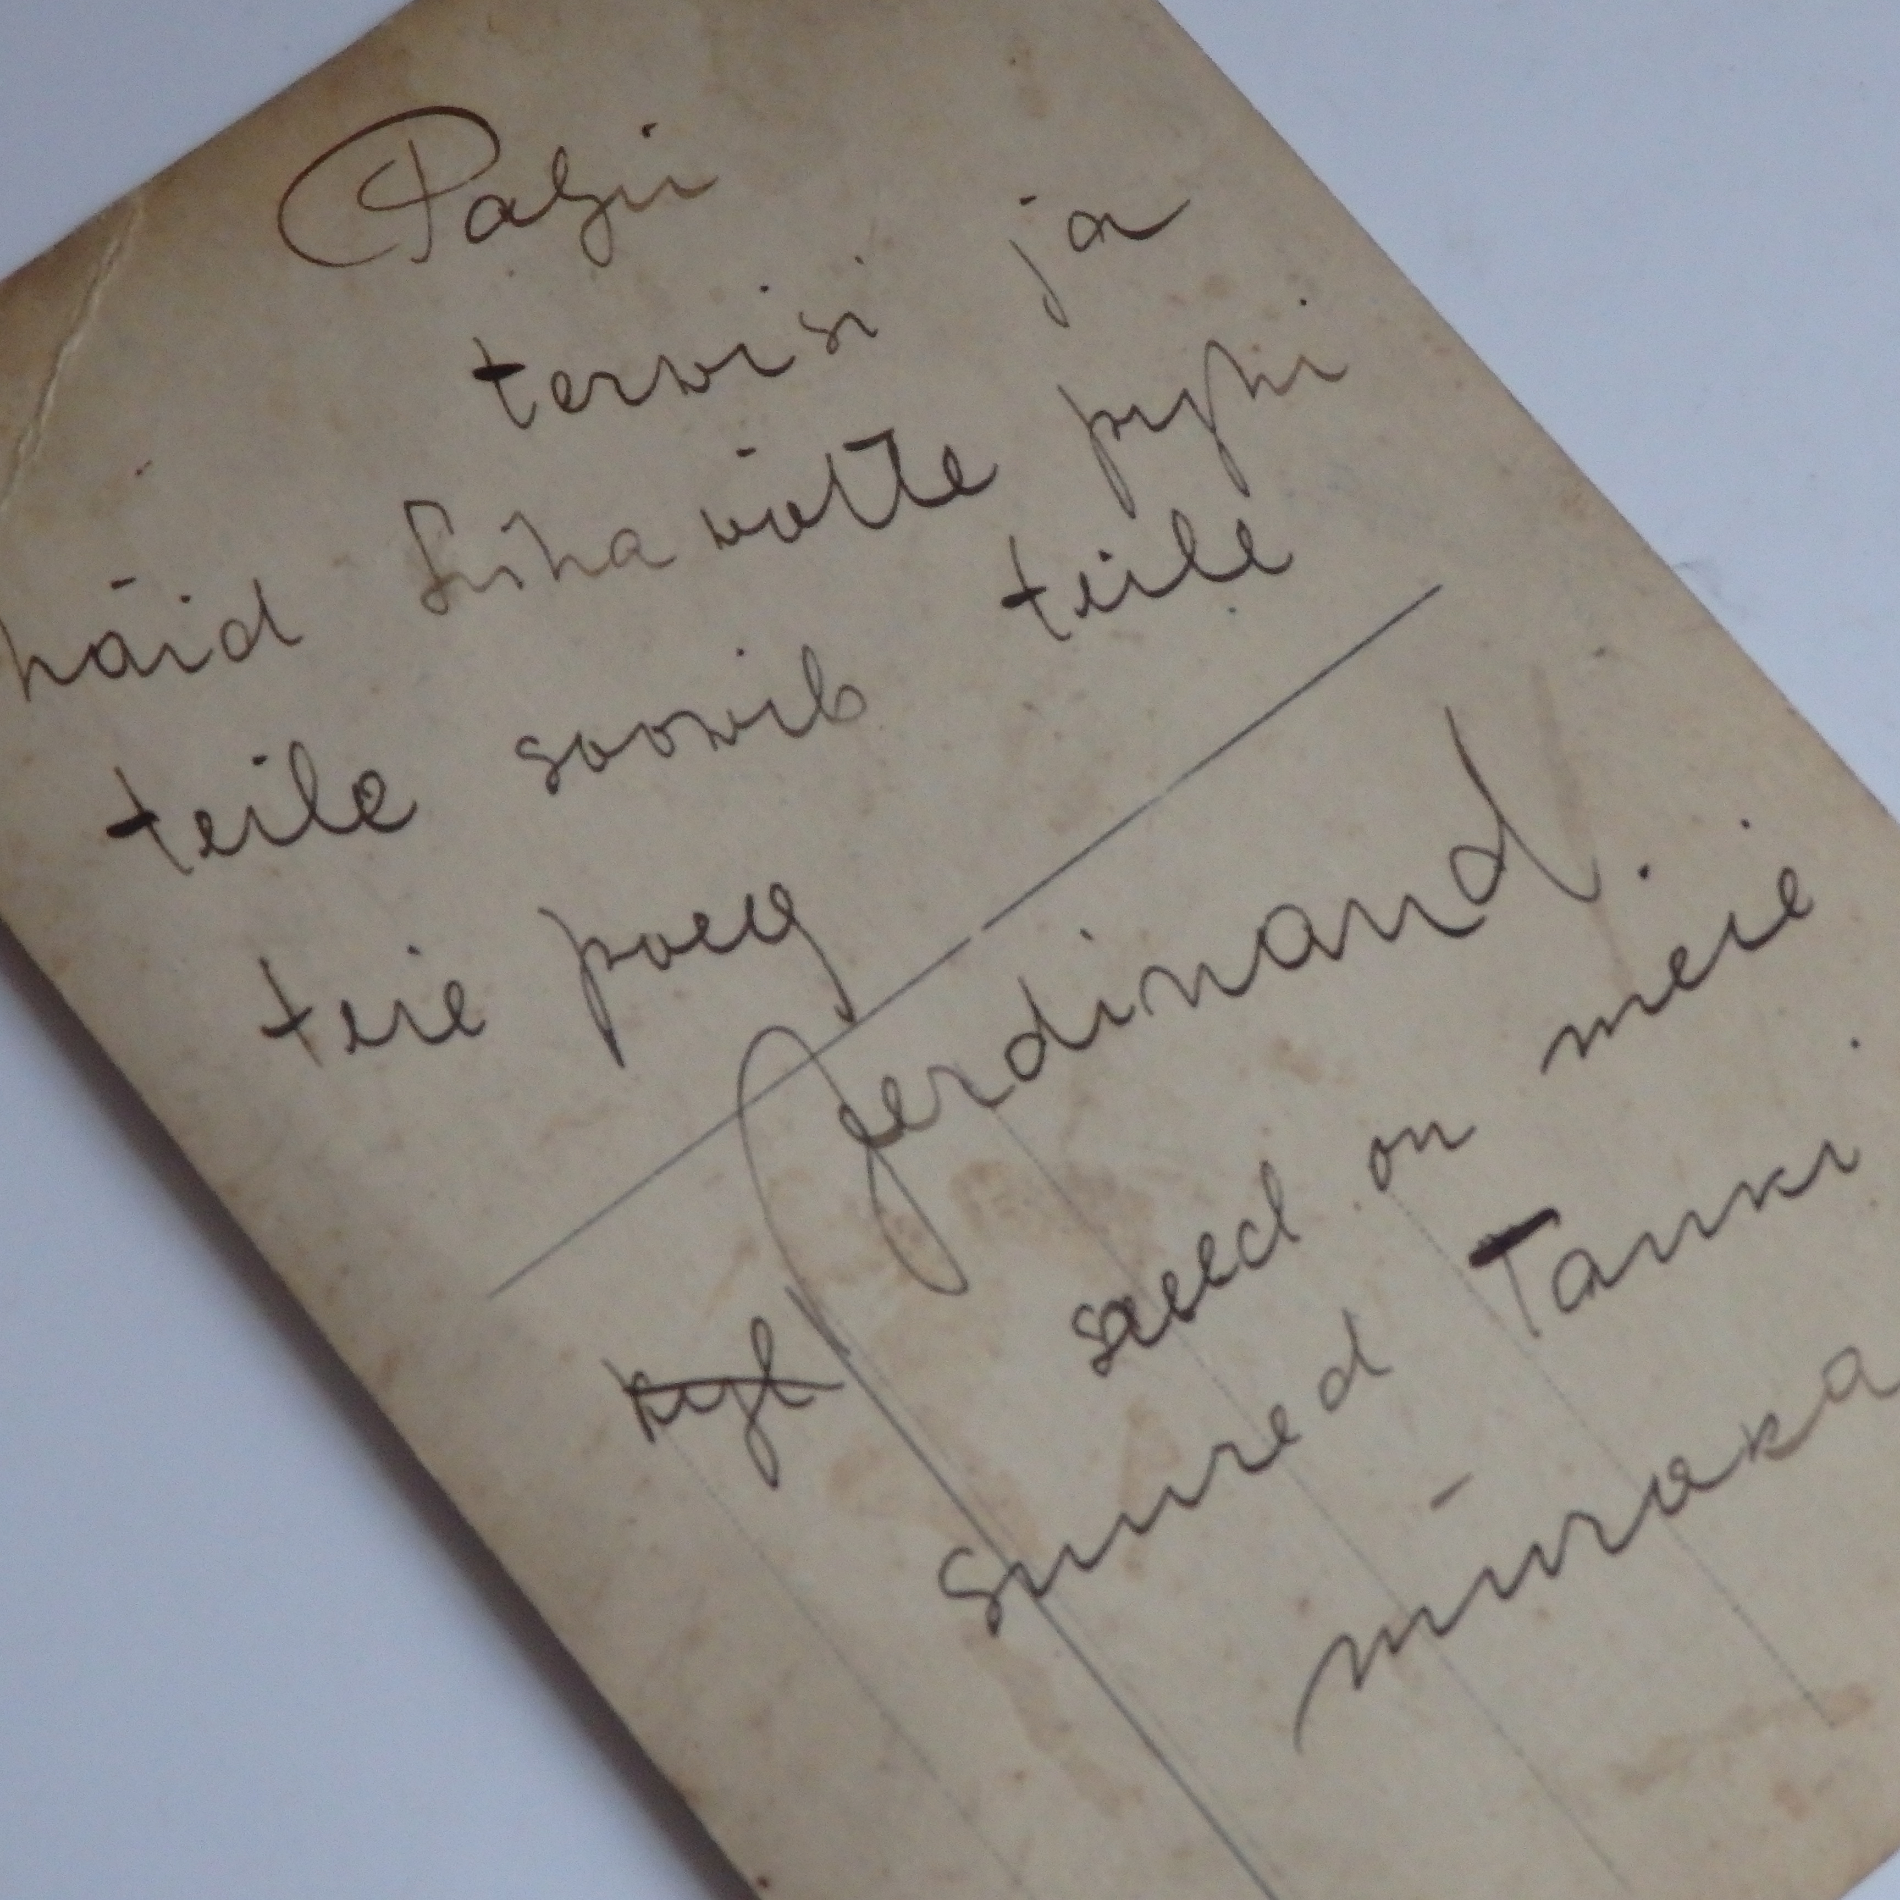 Palju
terwisi ja
häid Lihawõtte pyhi
teile soowib teile
teie poeg
Ferdinand.
need on meie
suured Tanki
müraka